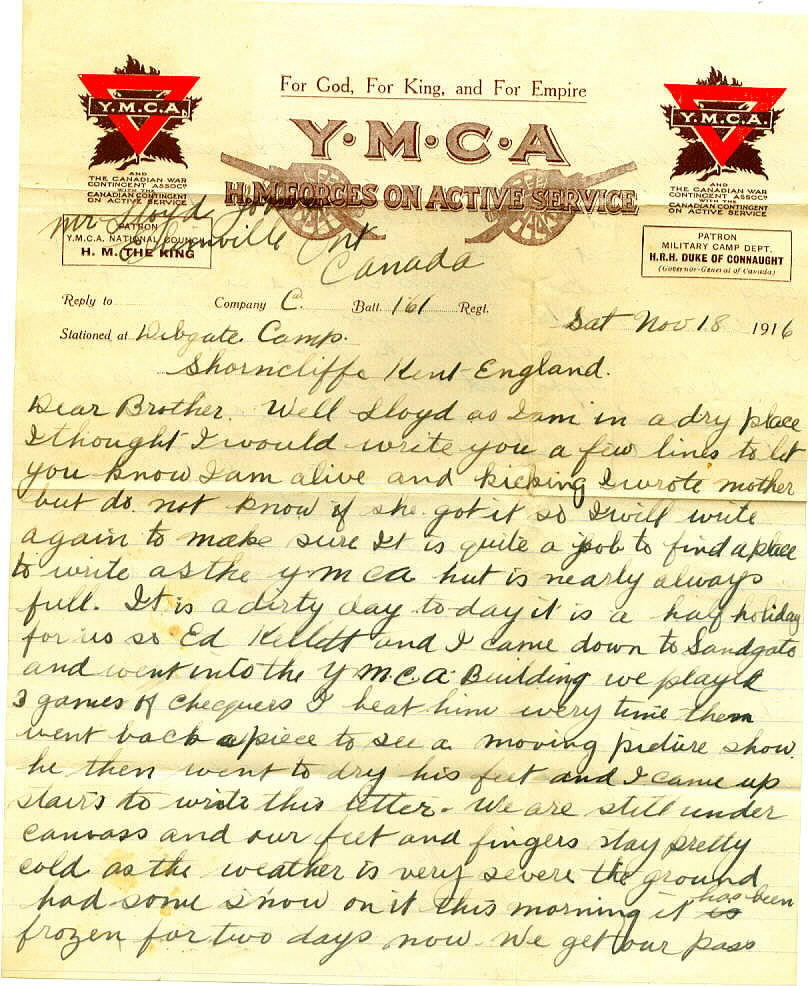 For God, For King, and For Empire
Y.M.C.A.
Y·M·C·A
Y.M.C.A.
AND
THE CANADIAN WAR
CONTINGENT ASSOCN
WITH THE
CANADIAN CONTINGENT
ON ACTIVE SERVICE
H.M. FORCES ON ACTIVE SERVICE
AND
THE CANADIAN WAR
CONTINGENT ASSOCN
WITH THE
CANADIAN CONTINGENT
ON ACTIVE SERVICE
PATRON
Y.M.C.A. NATIONAL COUNCIL
H. M. THE KING
PATRON
MILITARY CAMP DEPT.
H.R.H. DUKE OF CONNAUGHT
(Governor-General of Canada)
Mr Lloyd
Ont
Canada
Reply to Company C. Batt. 161 Regt.
Sat Nov 18 1916
Stationed at Dibgate Camp.
Shorncliffe Kent England.
Dear Brother. Well Lloyd as I am in a dry place
I thought I would write you a few lines to let
you know I am alive and kicking I wrote mother
but do not know if she got it so I will write
again to make sure It is quite a job to find a place
to write as the y m c a hut is nearly always
full. It is a dirty day to day it is a half holiday
for us so Ed Kellett and I came down to Sandgate
and went into the Y m.c.a. Building we played
3 games of chequers I beat him every time then
went back a piece to see a moving picture show.
he then went to dry his feet and I came up
stairs to write this letter. We are still under
canvass and our feet and fingers stay pretty
cold as the weather is very severe the ground
had some snow on it this morning it has been
frozen for two days now. We get our pass